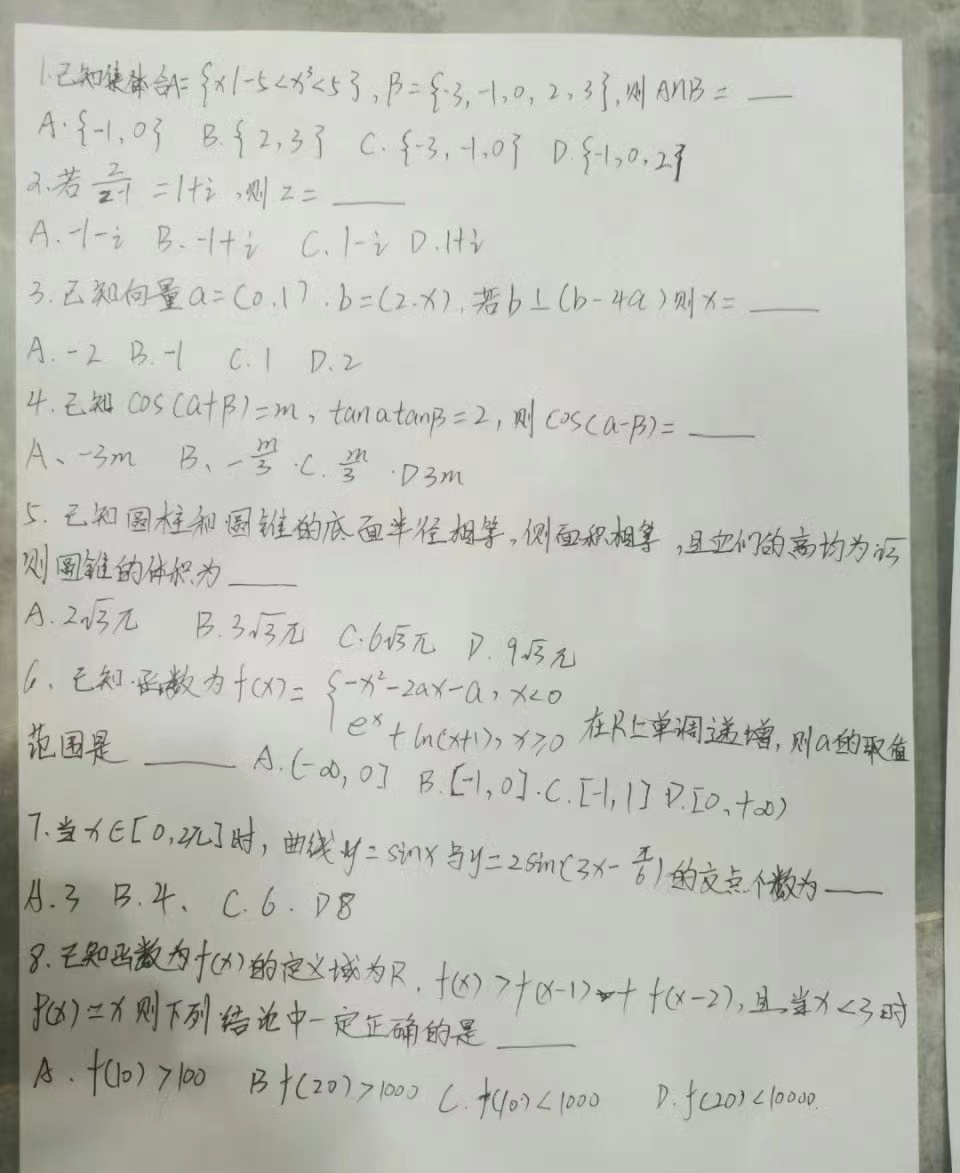 1.已知集合A={x|-5<x³<5},B={-3,-1,0,2,3},则A∩B=____
A.{-1,0} B.{2,3} C.{-3,-1,0} D.{-1,0,2}
2.若2/(z-1)=1+i,则z=____
A.-1-i B.-1+i C.1-i D.1+i
3.已知向量a=(0.1).b=(2.x),若b⊥(b-4a)则x=____
A.-2 B.-1 C.1 D.2
4.已知cos(a+β)=m,tanatanβ=2,则cos(a-β)=____
A、-3m B、-m/3 .C.m/3 .D3m
5.已知圆柱和圆锥的底面半径相等,侧面积相等,且它们的高均为√3
则圆锥的体积为____
A.2√3π B.3√3π C.6√3π D.9√3π
6、已知函数为f(x)={-x²-2ax-a,x<0
e^x+ln(x+1),x≥0 在R上单调递增,则a的取值
范围是____ A.(-∞,0] B.[-1,0].C.[-1,1] D.[0,+∞)
7.当x∈[0,2π]时,曲线y=sinx与y=2sin(3x-π/6)的交点个数为____
A.3 B.4、 C.6. D8
8.已知函数为f(x)的定义域为R.f(x)>f(x-1)+f(x-2),且当x<3时
f(x)=x则下列结论中一定正确的是____
A.f(10)>100 B f(20)>1000 C.f(10)<1000 D.f(20)<10000.